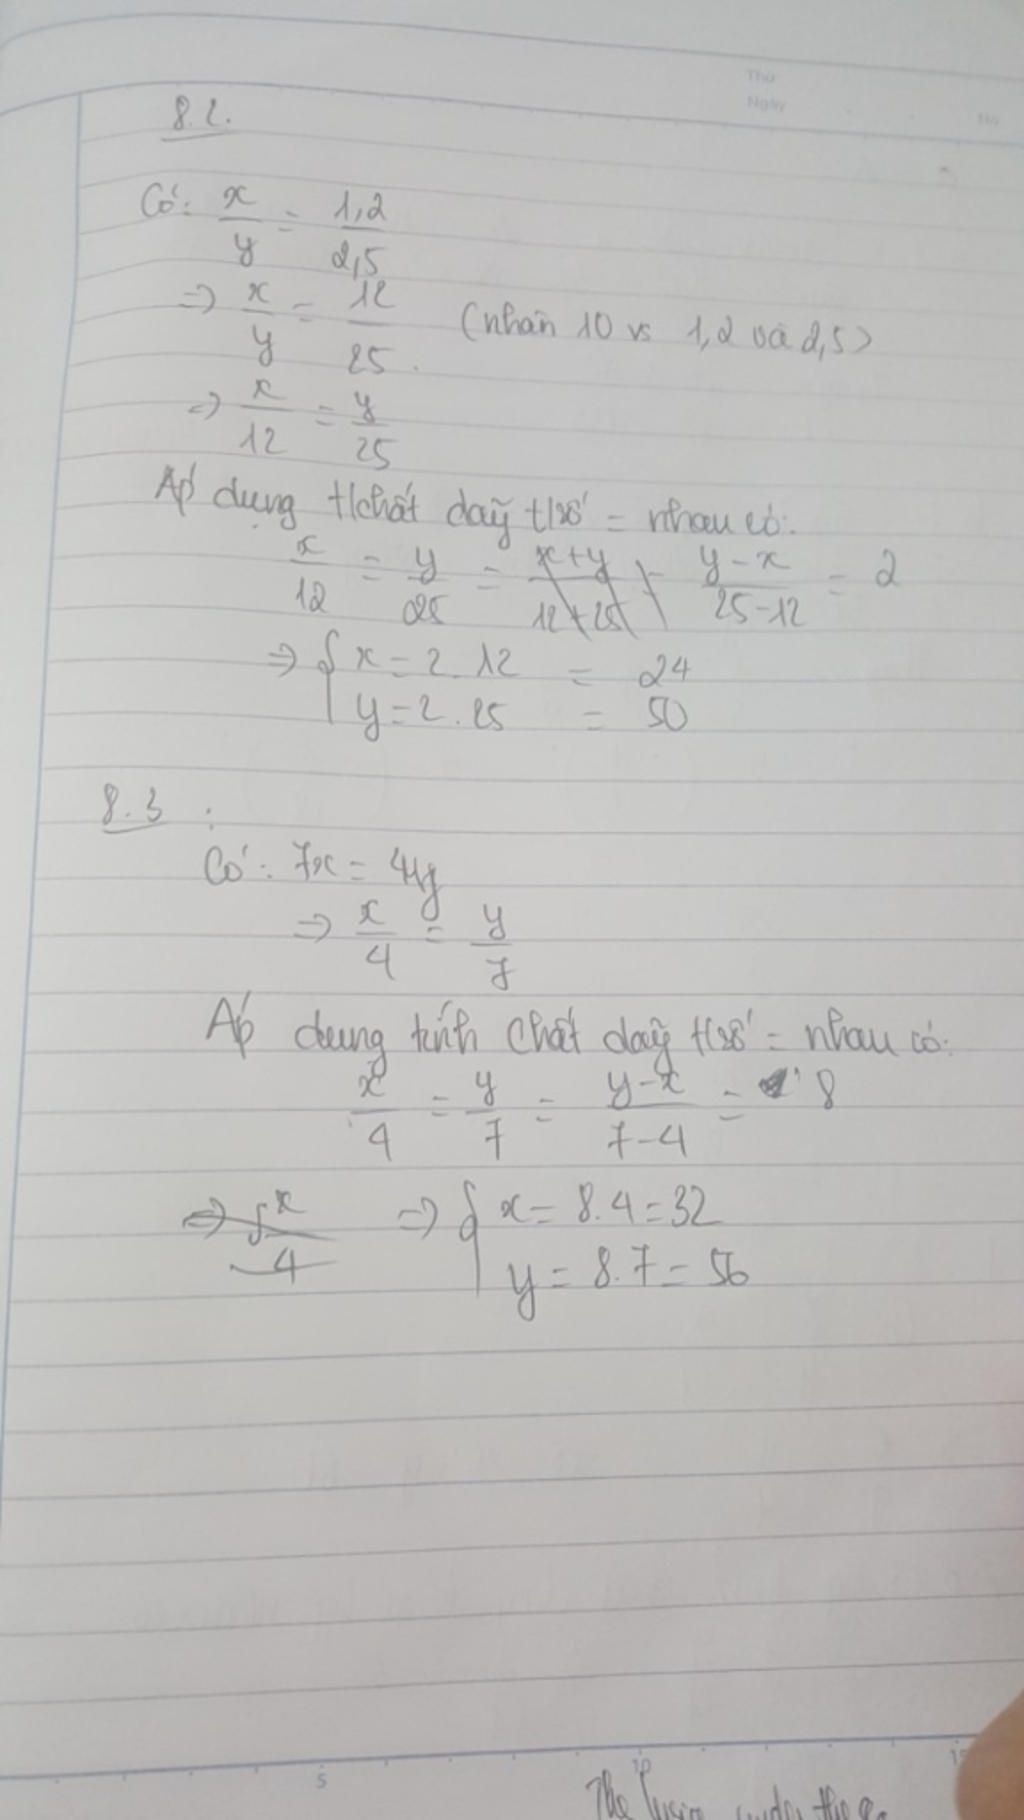 Thứ
Ngày
No
8.2.
Có: x/y = 1,2/2,5
=> x/y = 12/25 (nhân 10 vs 1,2 và 2,5)
=> x/12 = y/25
Áp dụng t/chất dãy t/số = nhau có:
x/12 = y/25 = x+y/12+25 y-x/25-12 = 2
=> { x = 2.12 = 24
y = 2.25 = 50
8.3 :
Có: 7x = 4y
=> x/4 = y/7
Áp dung tính chất dãy t/số = nhau có:
x/4 = y/7 = y-x/7-4 = 8
=> { x/4 => { x = 8.4 = 32
y = 8.7 = 56
5 10 15
The